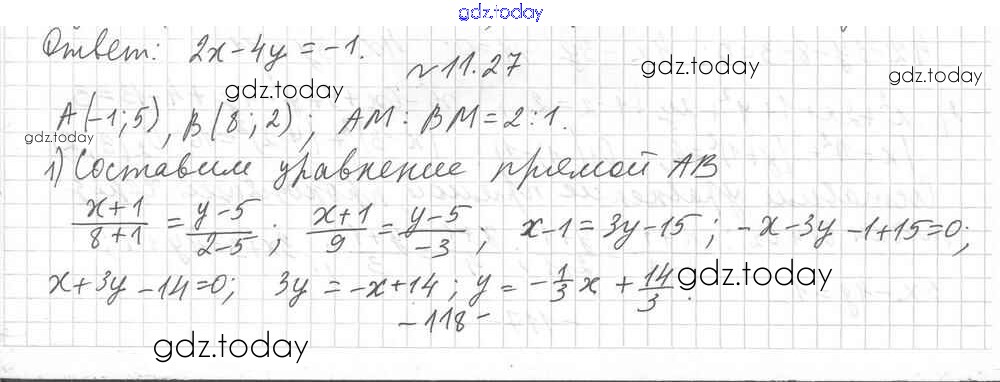 gdz.today
Ответ: 2x-4y=-1.
gdz.today
№11.27
gdz.today
gdz.today
A(-1;5), B(8;2); AM:BM=2:1.
gdz.today
1) Составим уравнение прямой AB
(x+1)/(8+1) = (y-5)/(2-5); (x+1)/9 = (y-5)/(-3); x-1=3y-15; -x-3y-1+15=0;
x+3y-14=0; 3y=-x+14; y=-1/3x+14/3.
gdz.today
-118-
gdz.today